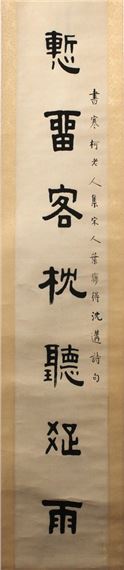 書寒柯老人集宋人葉夢得沈遘詩句
慙畱客枕聽雨